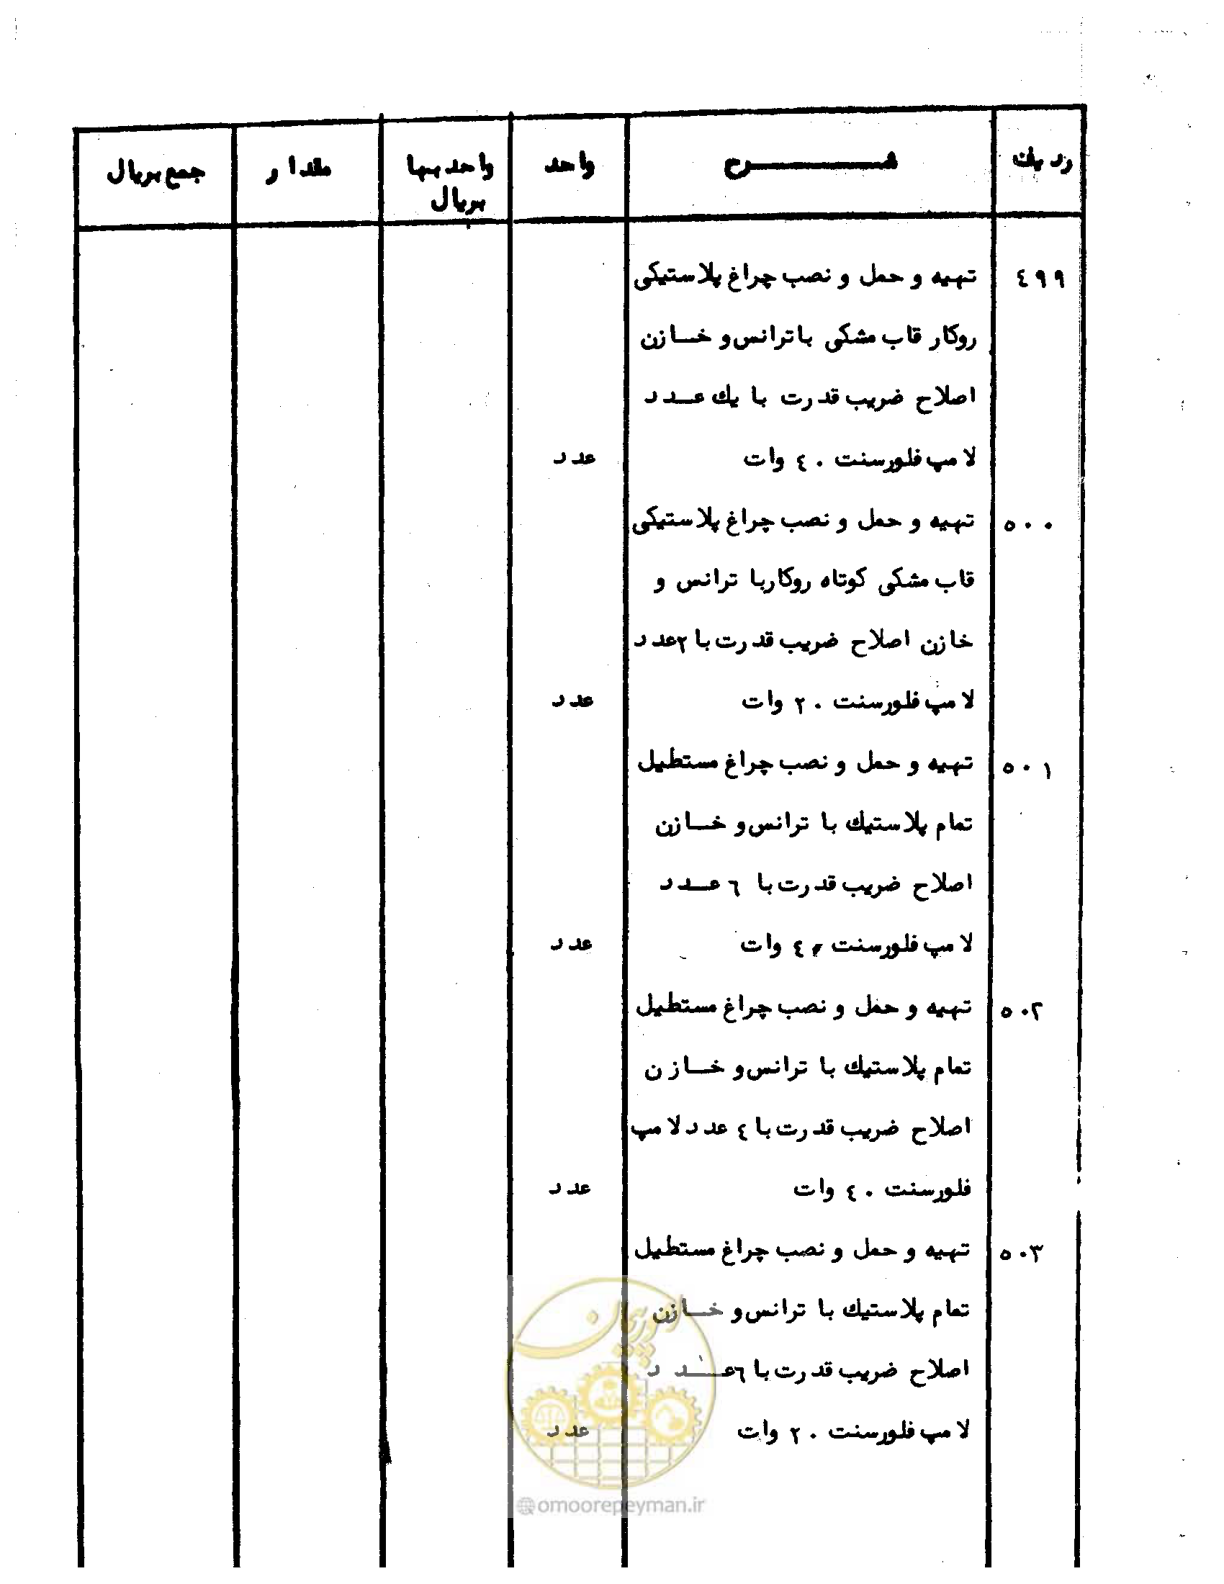 ردیف شـــرح واحد واحد بها بریال مقدار جمع بریال
٤٩٩ تهیه و حمل و نصب چراغ پلاستیکی
روکار قاب مشکی با ترانس و خازن
اصلاح ضریب قدرت با یك عدد
لامپ فلورسنت ٤٠ وات عدد
٥٠٠ تهیه و حمل و نصب چراغ پلاستیکی
قاب مشکی کوتاه روکار با ترانس و
خازن اصلاح ضریب قدرت با ٢ عدد
لامپ فلورسنت ٢٠ وات عدد
٥٠١ تهیه و حمل و نصب چراغ مستطیل
تمام پلاستیك با ترانس و خازن
اصلاح ضریب قدرت با ٦ عدد
لامپ فلورسنت ٤٠ وات عدد
٥٠٢ تهیه و حمل و نصب چراغ مستطیل
تمام پلاستیك با ترانس و خازن
اصلاح ضریب قدرت با ٤ عدد لامپ
فلورسنت ٤٠ وات عدد
٥٠٣ تهیه و حمل و نصب چراغ مستطیل
تمام پلاستیك با ترانس و خازن
اصلاح ضریب قدرت با ٦ عدد
لامپ فلورسنت ٢٠ وات عدد
امور پیمان
@omoorepeyman.ir